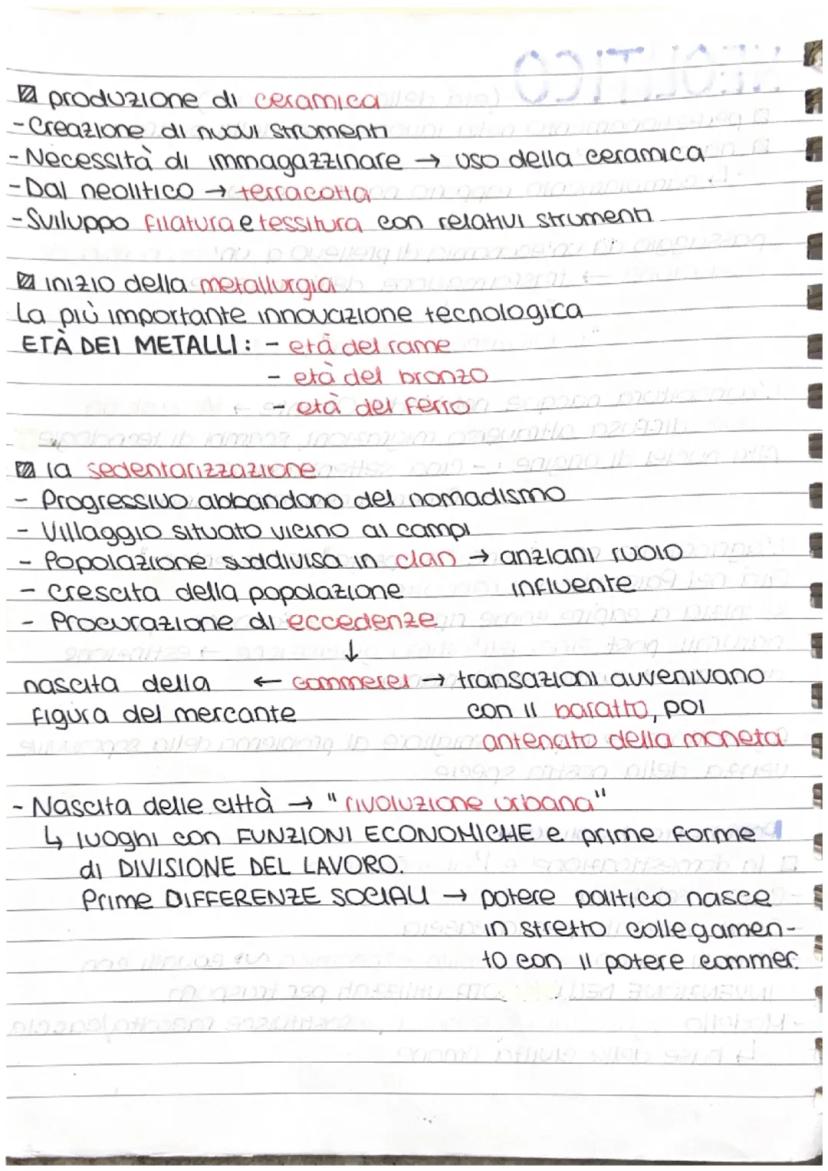 produzione di ceramica
- Creazione di nuovi strumenti
- Necessità di immagazzinare → uso della ceramica
- Dal neolitico → terracotta
- Sviluppo filatura e tessitura con relativi strumenti
inizio della metallurgia
La più importante innovazione tecnologica
ETÀ DEI METALLI: - età del rame
- età del bronzo
- età del ferro
la sedentarizzazione
- Progressivo abbandono del nomadismo
- Villaggio situato vicino ai campi
- Popolazione suddivisa in clan → anziani ruolo
influente
- Crescita della popolazione
- Procurazione di eccedenze
↓
nascita della ← commerci → transazioni avvenivano
figura del mercante con il baratto, poi
antenato della moneta
- Nascita delle città → "rivoluzione urbana"
↳ luoghi con FUNZIONI ECONOMICHE e prime forme
di DIVISIONE DEL LAVORO.
Prime DIFFERENZE SOCIALI → potere politico nasce
in stretto collegamen-
to con il potere commer.